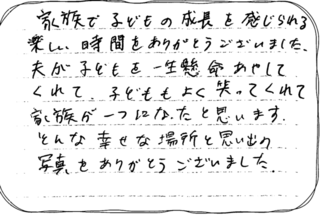 家族で子どもの成長を感じられる
楽しい時間をありがとうございました。
夫が子どもを一生懸命あやして
くれて、子どももよく笑ってくれて
家族が一つになったと思います。
そんな幸せな場所と思い出の
写真をありがとうございました。